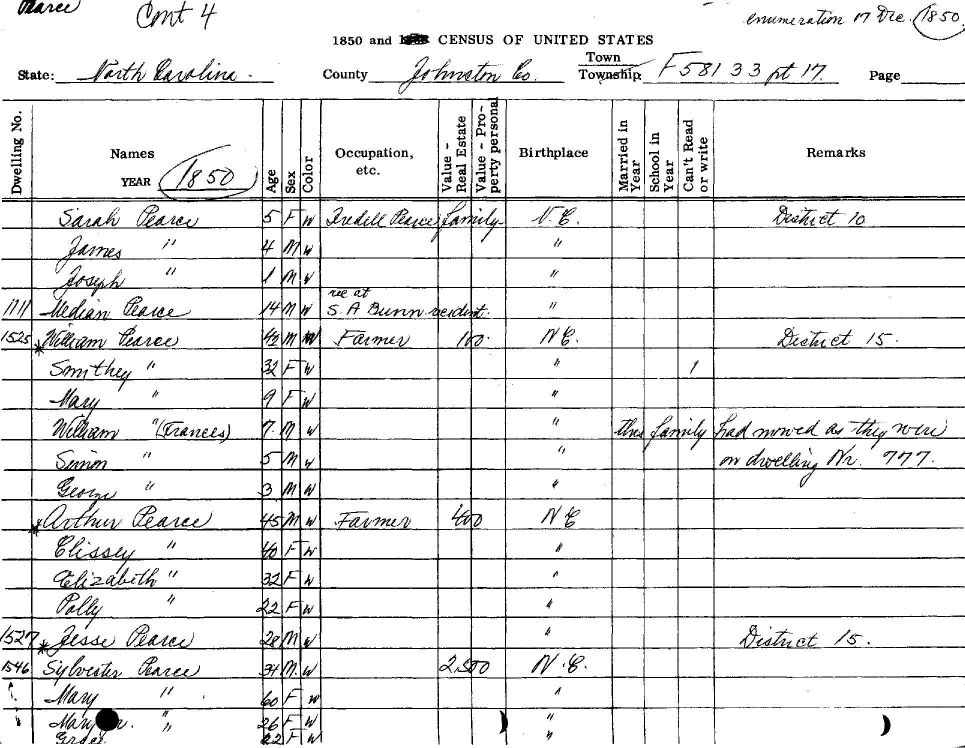 Pearce Cont 4 enumeration 17 Dec. 1850
1850 and CENSUS OF UNITED STATES
State: North Carolina. County Johnston Co. Town Township F581 33 pt 17. Page
Dwelling No. Names YEAR 1850 Age Sex Color Occupation, etc. Value - Real Estate Value - Property personal Birthplace Married in Year School in Year Can't Read or write Remarks
Sarah Pearce 5 F W Iredell Pearce family N.C. District 10
James " 4 M W "
Joseph " 1 M W "
1711 Median Pearce 14 M W rec at S. A Bunn resident. "
1525 *William Pearce 42 M W Farmer 100. N.C. District 15.
Smithey " 32 F W " 1
Mary " 9 F W "
William "(Frances) 7. M W " this family had moved as they were
Simon " 5 M W " on dwelling Nr. 777.
George " 3 M W "
*Arthur Pearce 45 M W Farmer 400 N C
Clissey " 40 F W "
Elizabeth " 32 F W "
Polly " 22 F W "
1527 *Jesse Pearce 28 M W " District 15.
1546 Sylvester Pearce 34 M. W 2,500 N.C.
Mary " 60 F W "
Mary " 26 F W "
Grace 22 F W "